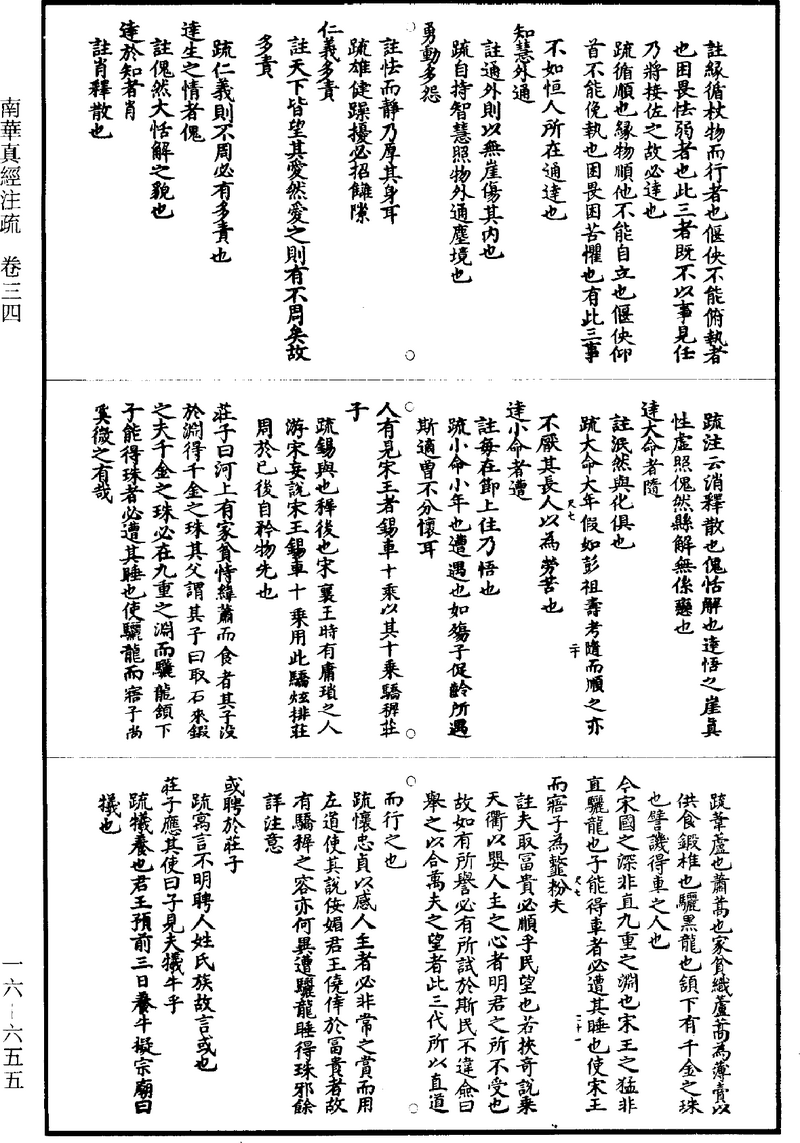 南華真經注疏　卷三四
註緣循杖物而行者也偃佒不能俯執者
也困畏怯弱者也此三者既不以事見任
乃將接佐之故必達也
疏循順也緣物順他不能自立也偃佒仰
首不能俛執也困畏困苦懼也有此三事
不如恒人所在通達也
知慧外通
註通外則以無崖傷其内也
疏自持智慧照物外通塵境也
勇動多怨
註怯而靜乃厚其身耳
疏雄健躁擾必招讎隙
仁義多責
註天下皆望其愛然愛之則有不周矣故
多責
疏仁義則不周必有多責也
達生之情者傀
註傀然大恬解之貌也
達於知者肖
註肖釋散也
疏注云消釋散也傀恬解也達悟之崖真
性虛照傀然縣解無係戀也
達大命者隨
註泯然與化俱也
疏大命大年假如彭祖壽考隨而順之亦
不厭其長人以為勞苦也
達小命者遭
註每在節上住乃悟也
疏小命小年也遭遇也如殤子促齡所遇
斯適曾不介懷耳
人有見宋王者錫車十乘以其十乘驕稺莊
子
疏錫與也稺後也宋襄王時有庸瑣之人
游宋妄說宋王錫車十乘用此驕炫排莊
周於己後自矜物先也
莊子曰河上有家貧恃緯蕭而食者其子沒
於淵得千金之珠其父謂其子曰取石來鍛
之夫千金之珠必在九重之淵而驪龍頷下
子能得珠者必遭其睡也使驪龍而寤子尚
奚微之有哉
疏葦蘆也蕭蒿也家貧織蘆蒿為薄賣以
供食鍛椎也驪黑龍也頷下有千金之珠
也譬譏得車之人也
今宋國之深非直九重之淵也宋王之猛非
直驪龍也子能得車者必遭其睡也使宋王
而寤子為虀粉夫
註夫取富貴必順乎民望也若挾奇說乘
天衢以嬰人主之心者明君之所不受也
故如有所譽必有所試於斯民不違僉曰
舉之以合萬夫之望者此三代所以直道
而行之也
疏懷忠貞以感人主者必非常之賞而用
左道使其說佞媚君王僥倖於富貴者故
有驕稺之容亦何異遭驪龍睡得珠邪餘
詳注意
或聘於莊子
疏寓言不明聘人姓氏族故言或也
莊子應其使曰子見夫犧牛乎
疏犧養也君王預前三日養牛擬宗廟曰
犧也
一六－六五五